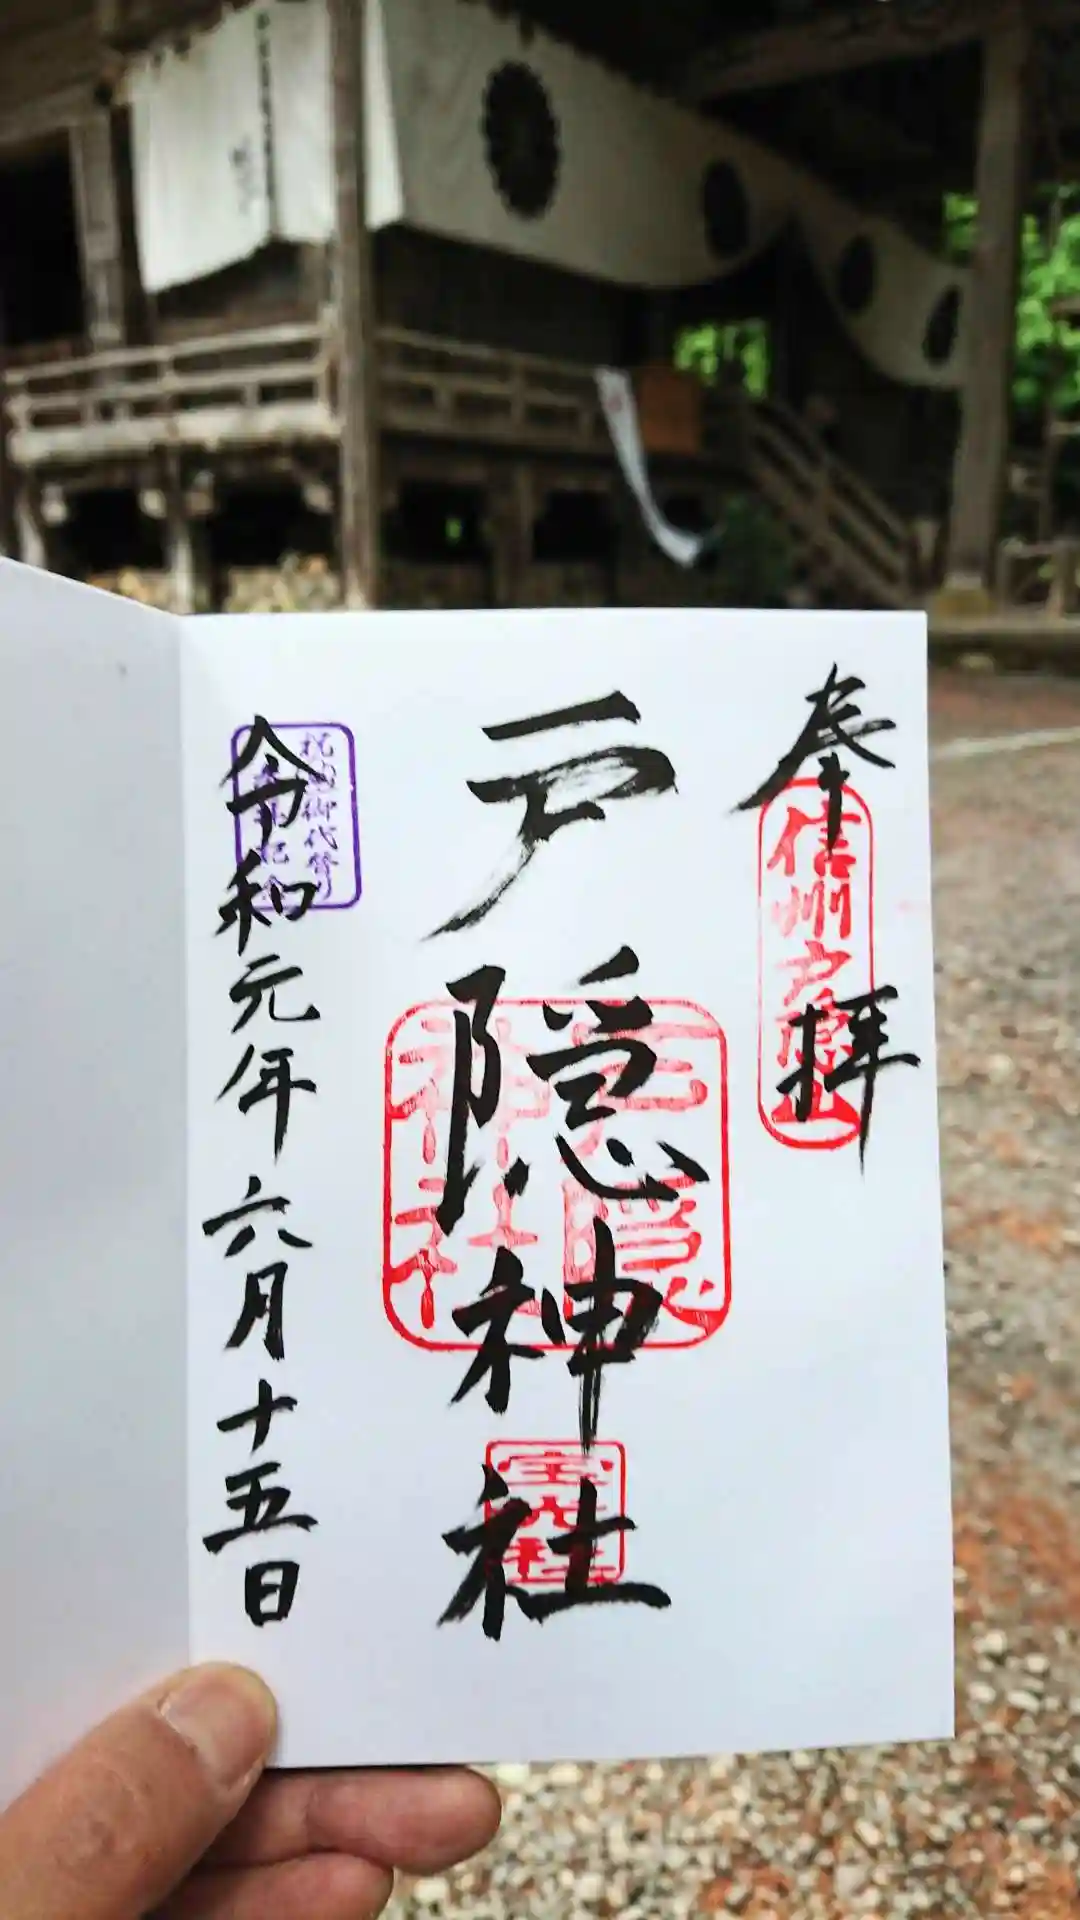 奉拝
信州戸隠山
戸隠神社
戸隠
神社
宝光社
祝 御代替り
令和元年六月十五日